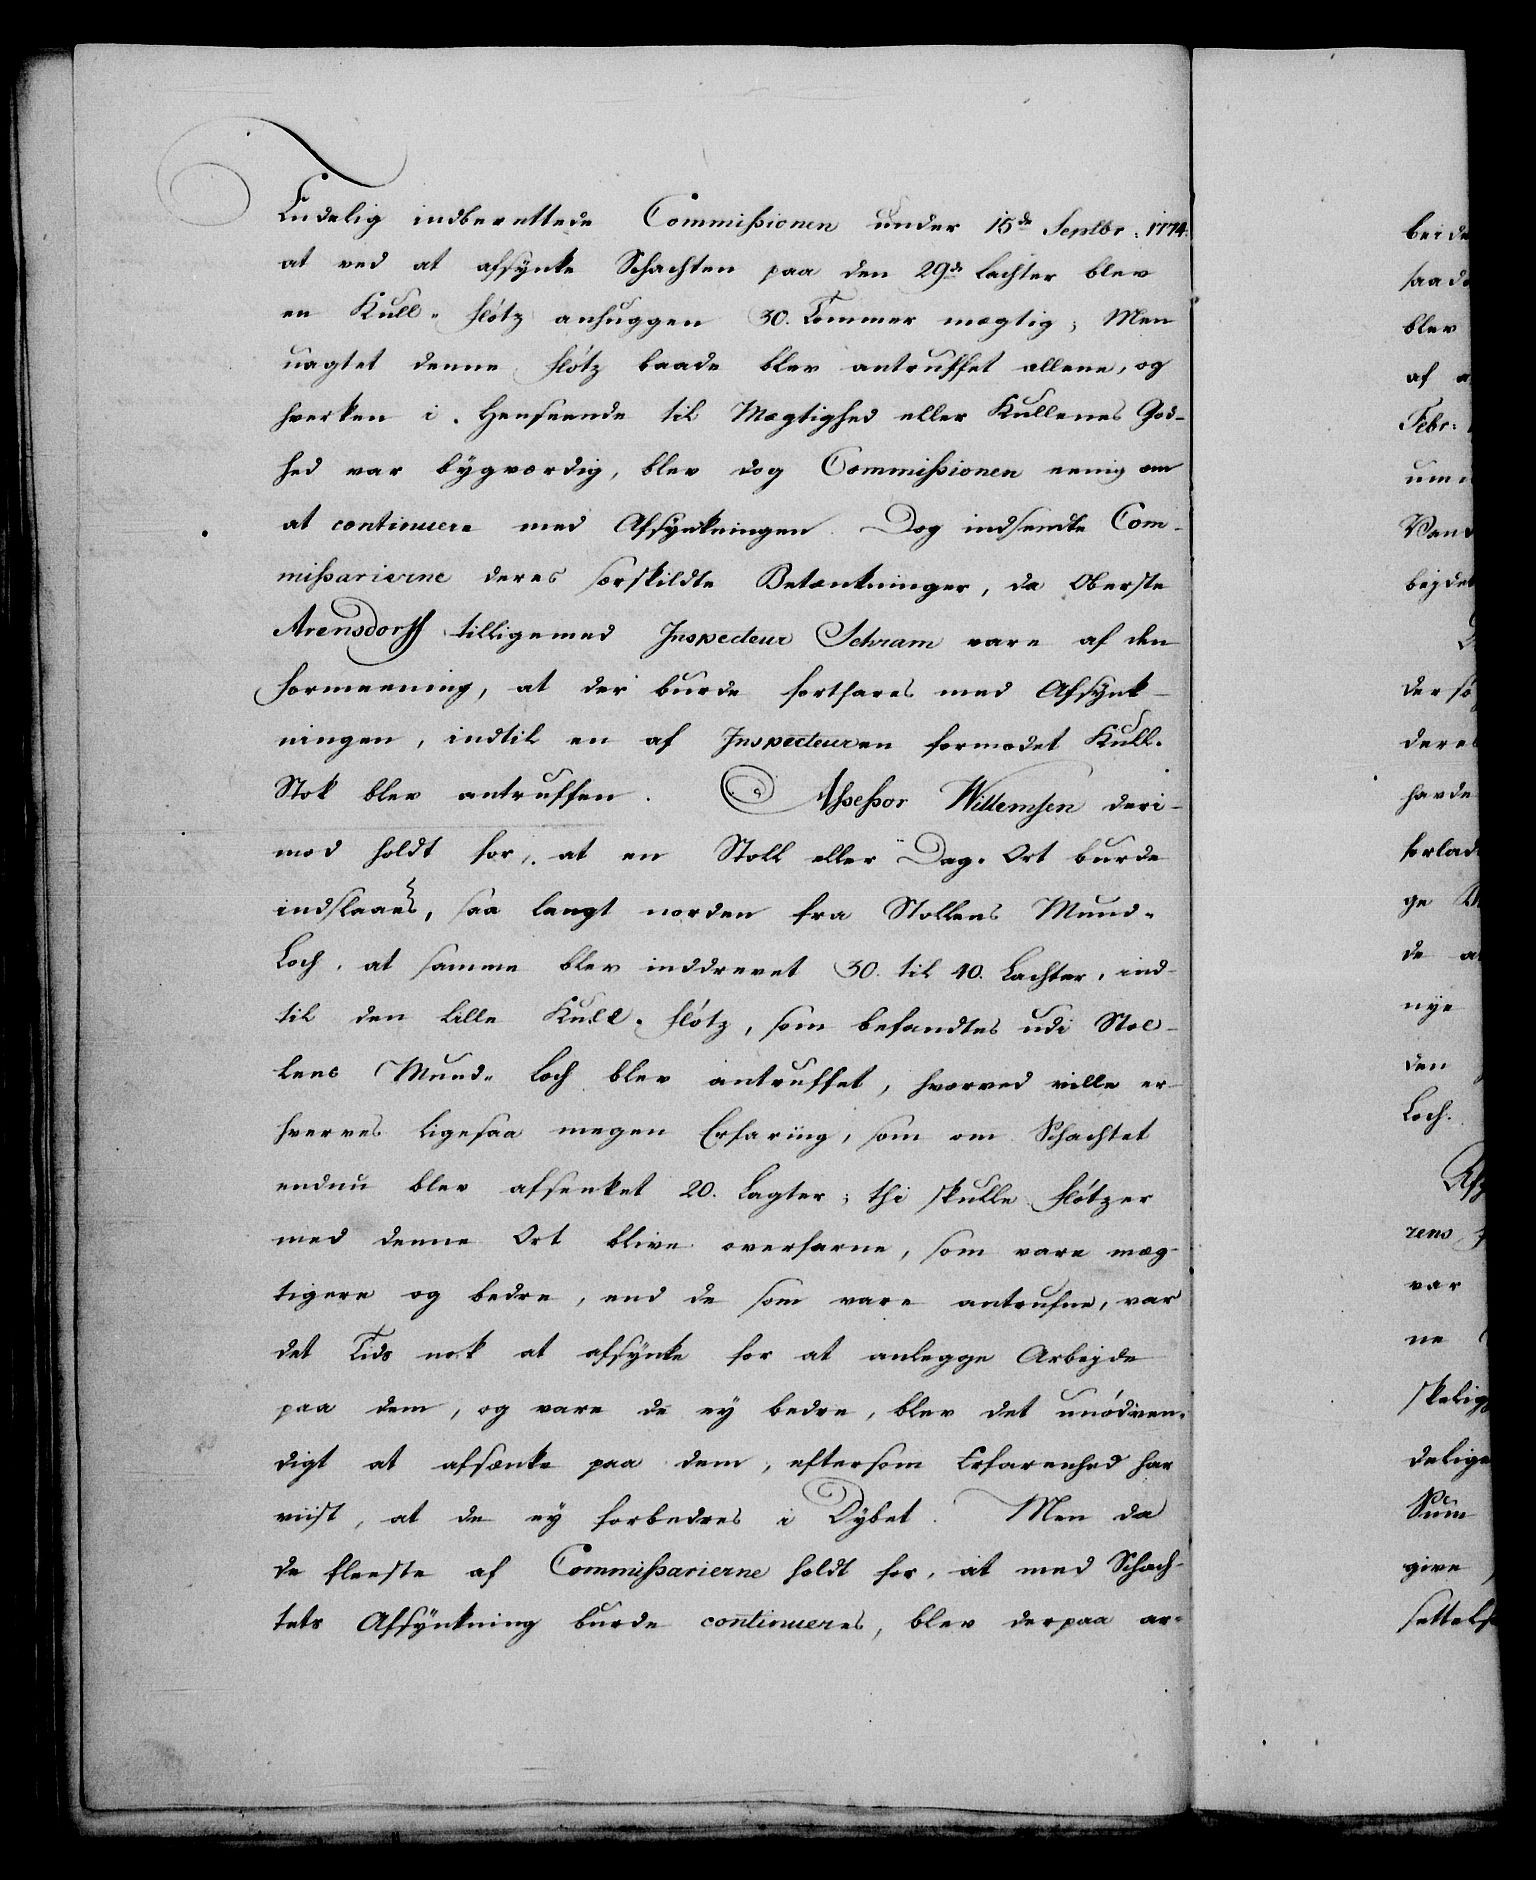 Endelig indberettede Commissionen under 15de Septbr: 1774.
at ved at afsynke Schachten paa den 29de Lachter blev
en Kull-Flötz anhuggen 30. Tommer mægtig; Men
uagtet denne Flötz baade blev antruffet allene, og
hverken i Henseende til Mægtighed eller Kullenes God-
hed var bygværdig, blev dog Commissionen eenig om
at continuere med Afsynkningen. Dog indsendte Com-
missarierne deres særskildte Betænkninger, da Oberste
Arensdorff tilligemed Inspecteur Schram vare af den
Formeening, at der burde fortfares med Afsynk-
ningen, indtil en af Inspecteuren formodet Kull-
Stok blev antruffen. Assessor Willemsen deri-
mod holdt for, at en Stoll eller Dag-Ort burde
indslaaes, saa langt norden fra Stollens Mund-
Loch, at samme blev inddrevet 30. til 40. Lachter, ind-
til den lille Kull-Flötz, som befandtes udi Stol-
lens Mund-Loch blev antruffet, hvorved ville er-
hverves ligesaa megen Erfaring, som om Schachtet
endnu blev afsenket 20. Lagter; thi skulle Flötzer
med denne Ort blive overfarne, som vare mæg-
tigere og bedre, end de som vare antrufne, var
det Tids nok at afsynke for at anlegge Arbejde
paa dem, og vare de ey bedre, blev det unödven-
digt at afsænke paa dem, eftersom Erfarenhed har
viist, at de ey forbedres i Dybet. Men da
de fleeste af Commissarierne holdt for, at med Schach-
tets Afsynkning burde continueres, blev derpaa ar-
blev
af
Febr:
nye
den
Loch.
var
ne
Sum
give